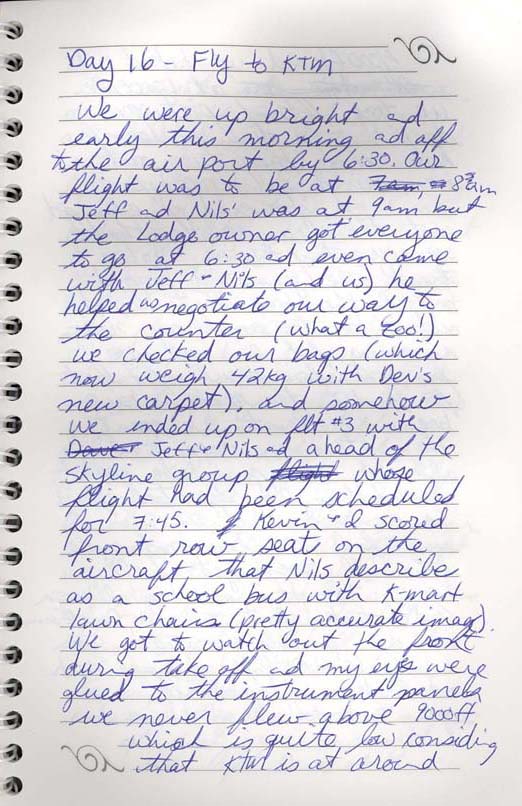 Day 16 - Fly to KTM
We were up bright ad
early this morning ad off
to the air port by 6:30. Our
flight was to be at 7am, 8am
Jeff ad Nils' was at 9am, but
the Lodge owner got everyone
to go at 6:30 ad even came
with Jeff + Nils (and us) he
helped us negotiate our way to
the counter (what a zoo!)
we checked our bags (which
now weigh 42kg with Dev's
new carpet), and somehow
we ended up on flt #3 with
Dave + Jeff + Nils ad ahead of the
skyline group flight whose
flight had been scheduled
for 7:45. Kevin + I scored
front row seats on the
aircraft, that Nils describe
as a school bus with K-mart
lawn chairs (pretty accurate image).
We got to watch out the front
during take off ad my eyes were
glued to the instrument panels
we never flew above 9000ft
which is quite low considing
that KTM is at around